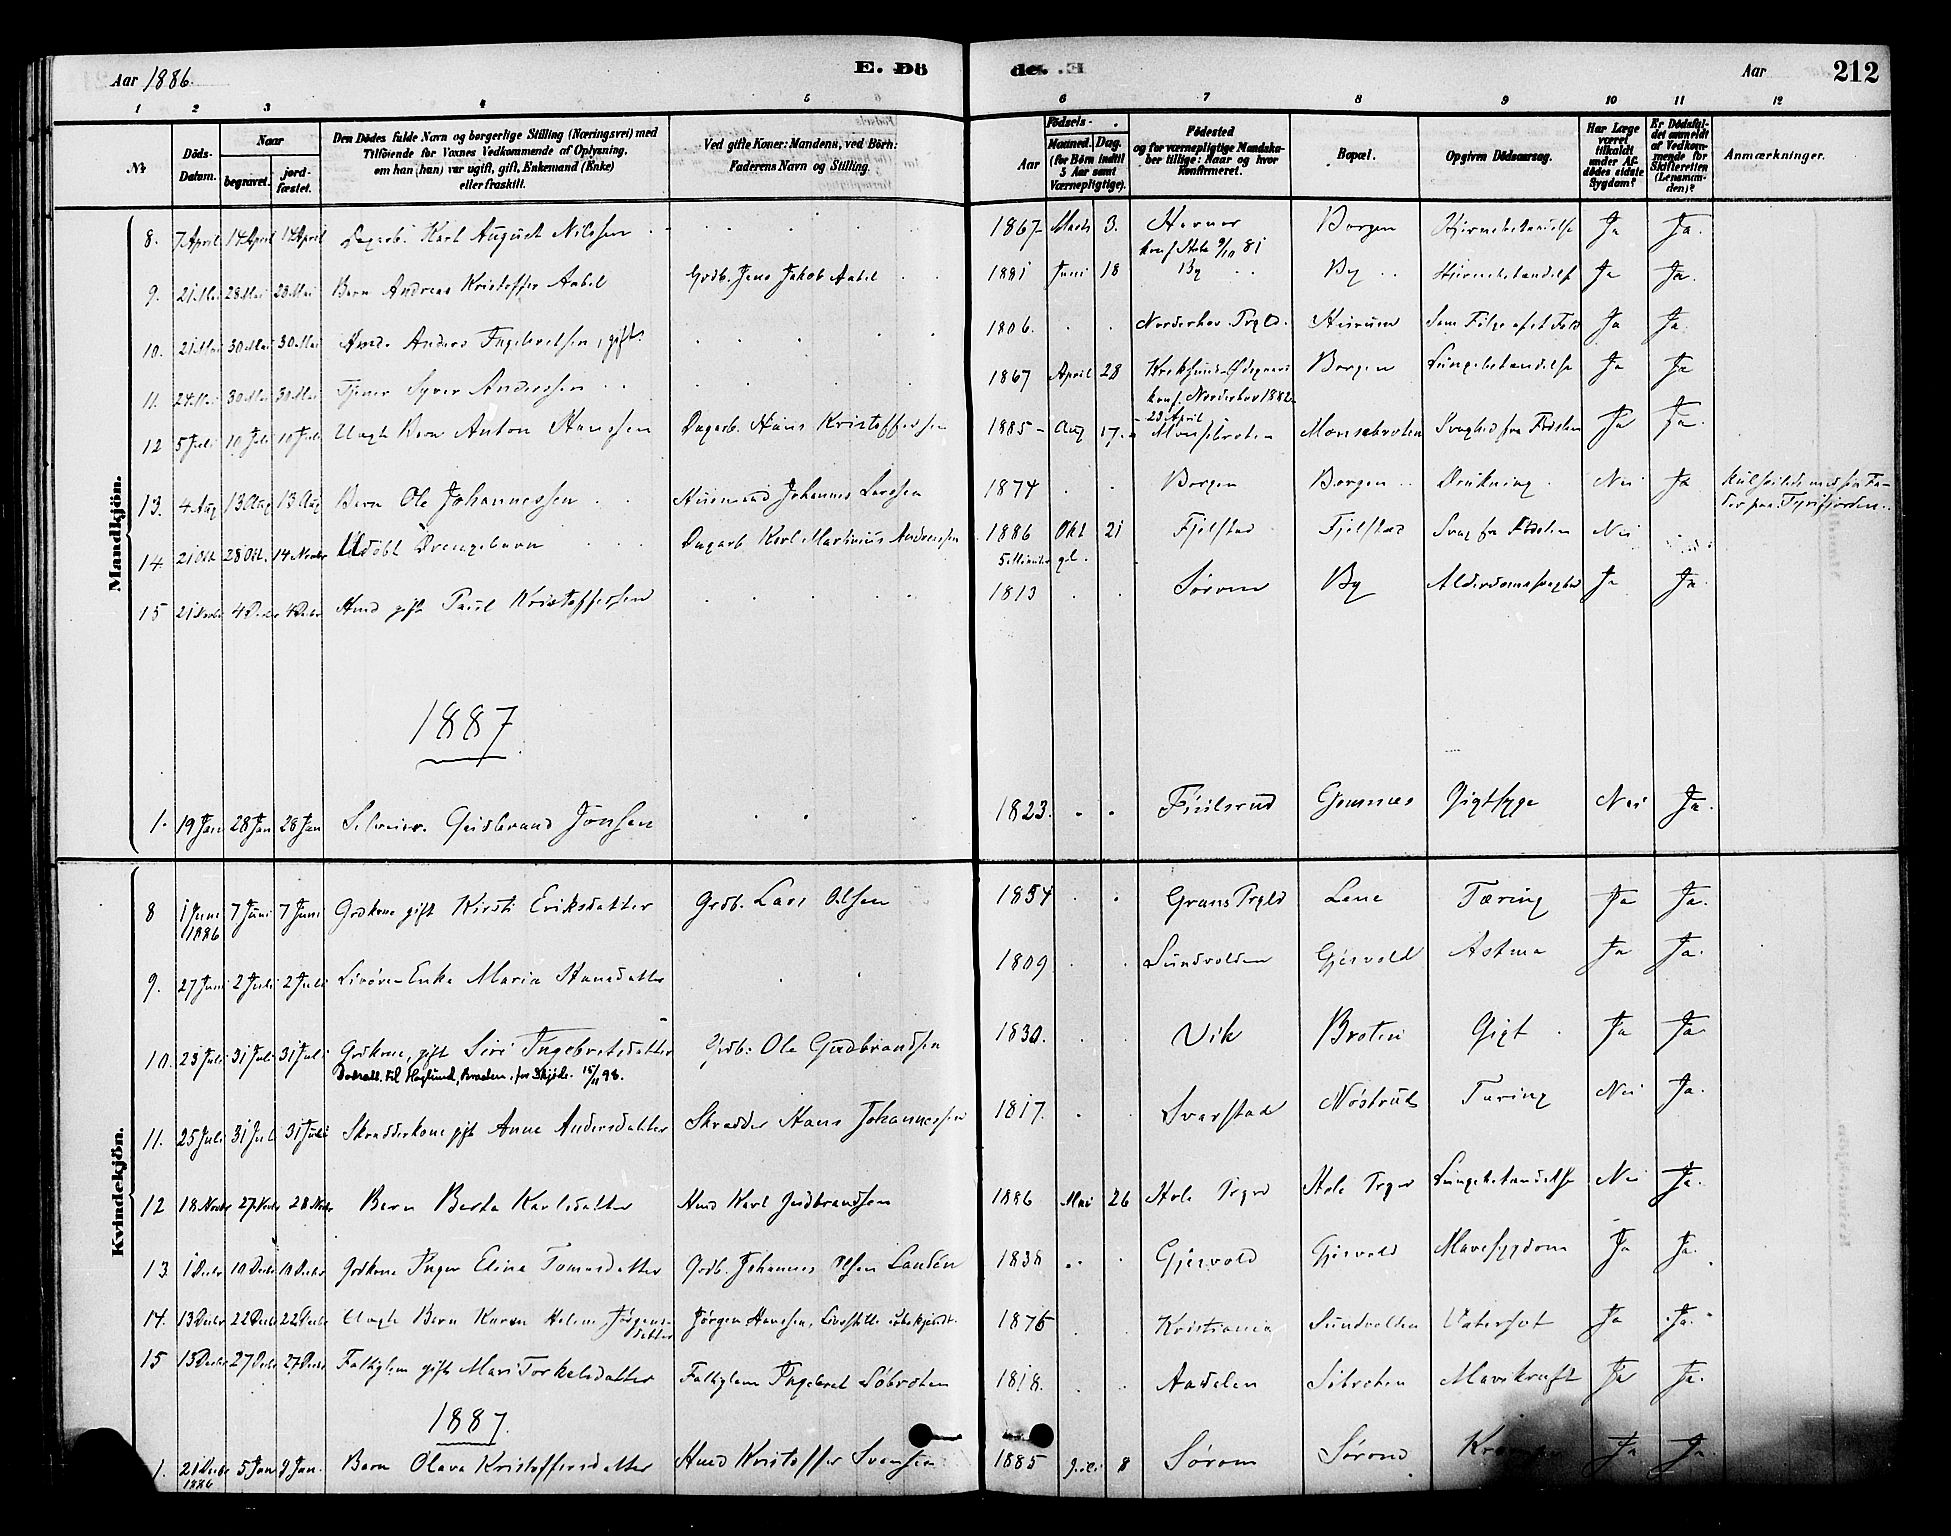 Aar 1886. E. Dö de. E. Aar 212
1 2 3 4 5 6 7 8 9 10 11 12
No
Döds-Datum.
Naar
begravet.
jordfæstet.
Den Dödes fulde Navn og borgerlige Stilling (Næringsvei) med
Tilföiende for Voxnes Vedkommende af Oplysning,
om han (hun) var ugift, gift, Enkemand (Enke)
eller fraskilt.
Ved gifte Koner: Mandens, ved Börn:
Faderens Navn og Stilling.
Födsels-
Aar
Maaned. Dag.
(for Börn indtil
5 Aar samt
Værnepligtige).
Födested
og for værnepligtige Mandskaber tillige: Naar og hvor
konfirmeret.
Bopæl.
Opgiven Dödsaarsag.
Har Læge
været
tilkaldt
under Afdödes sidste
Sygdom?
Er Dödsfaldet anmeldt
af Vedkommende for
Skifteretten
(Lensmanden)?
Anmærkninger.
Mandkjön.
8. 7 April 14 April 14 April Dagarb. Karl August Nilssen 1867 Marts 3. Borgen Hjernebetændelse Ja Ja.
konf. Hole 9/10 81
9. 21 Mai 28 Mai 28 Mai Barn Andreas Kristoffer Aubel Grdb. Jens Jakob Aubel 1881 Juni 18 By By Hjernebetændelse Ja Ja.
10. 21 Mai 30 Mai 30 Mai Anders Ingebretsen, gift. 1806. Norderhov Prgld. Som Følge af et Fald Ja Ja.
11. 24 Mai 30 Mai 30 Mai Tjener Syver Anderssen 1867 April 28 Borgen Lungebetændelse Ja Ja
konf. Norderhov 1882
23 April
12 5 Juli 10 Juli 10 Juli Uægte Barn Anton Hanssen Dagarb. Hans Kristoffersen 1885 Aug 17. Monsebroten Monsebroten Svaghed fra Fødslen Ja Ja.
13. 4 Aug 13 Aug 13 Aug Barn Ole Johannessen Husmand Johannes Larssen 1874 Borgen Borgen Drukning Nei Ja
14. 21 Okt 28 Okt. 14 Novbr Udøbt Drengebarn Dagarb Karl Martinius Andreassen 1886 Okt 21 Fjelstad Fjelstad Svag fra Fødslen Nei
5 Minuter gl.
15 21 Novbr 4 Decbr 4 Decbr Hmd gift Paul Kristoffersen 1813 Sørum By Alderdomssvaghed Ja Ja.
1887.
1. 19 Jan 28 Jan 28 Jan Selveier. Gudbrand Jonsen 1823. Gomnes Gigtsyge Nei Ja.
Kvindekjön.
8 1 Juni 1886 7 Juni 7 Juni Grdkone gift Kirsti Eriksdatter Grdb. Lars Olsen 1854 Grans Prgld Lene Tæring Ja Ja.
9. 27 Juni 2 Juli 2 Juli Enke Maria Hansdatter 1809 Sundvolden Gjesvold Astma Ja Ja.
10. 23 Juli 31 Juli 31 Juli Grdkone, gift Siri Ingebretsdatter Grdb: Ole Gudbrandsen 1830. Vik Broten Gigt Ja Ja.
Haglund, Braaten, for Skjøde. 15/11 98.
11. 25 Juli 31 Juli 31 Juli Skrædderkone gift Anne Andersdatter Skrædder Hans Johannessen 1817. Svarstad Tæring Nei Ja.
12 18 Novbr 27 Novbr 28 Novbr Barn Berta Karlsdatter Hmd Karl Gudbrandsen 1886 Mai 26 Hole Prgld Hole Prgld Lungebetændelse Nei Ja.
13 1 Decbr 10 Decbr 10 Decbr Grdkone Inger Eline Tomasdatter Grdb. Johannes Olsen 1838 Gjesvold Gjesvold Mavesygdom Ja Ja.
14. 13 Decbr 22 Decbr 22 Decbr Uægte Barn Karen Helene Jørgensdatter Jørgen Hansen, Livsstilling ubekjendt. 1876 Kristiania Sundvolden Vatersot Ja Ja.
15 15 Decbr 27 Decbr 27 Decbr Fattiglem gift Mari Torkelsdatter Fattiglem Ingebret Søbroten 1818. Aadalen Søbroten Mavekræft Ja Ja.
1887.
1. 21 Decbr 1886 5 Jan 9 Jan. Barn Olava Kristoffersdatter Hmd Kristoffer Svensen 1885 Juli 8 Sørum Sørum Ja Ja